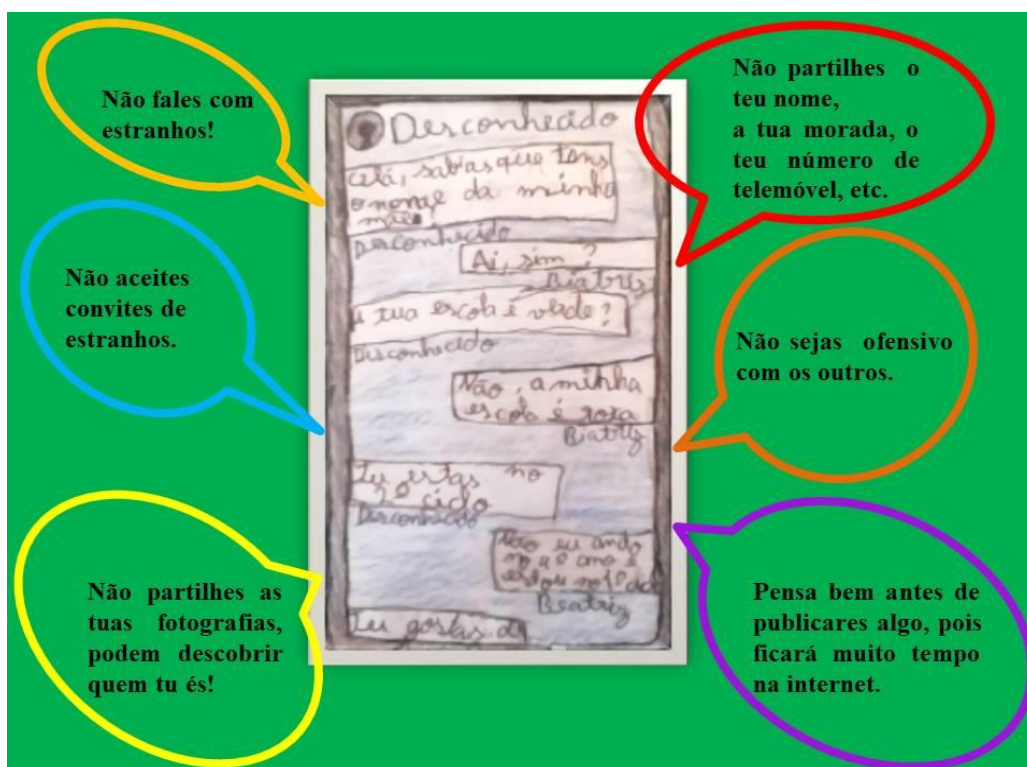 Não fales com
estranhos!
Não aceites
convites de
estranhos.
Não partilhes as
tuas fotografias,
podem descobrir
quem tu és!
Desconhecido
Olá, sabias que tens
o nome da minha
mãe?
Desconhecido
Ai, sim?
Biatriz
A tua escola é verde?
Disconhecido
Não, a minha
escola é rosa
Biatriz
Tu estas no
2º ciclo
Desconhecido
Não eu ando
no 4º ano e
estou no 1º ciclo
Beatriz
Tu gostas de
Não partilhes o
teu nome,
a tua morada, o
teu número de
telemóvel, etc.
Não sejas ofensivo
com os outros.
Pensa bem antes de
publicares algo, pois
ficará muito tempo
na internet.